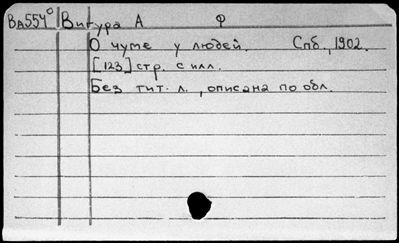 Ва554° Вигура А Ф
О чуме у людей. Спб., 1902.
[123] стр. с илл.
Без тит. л., описана по обл.